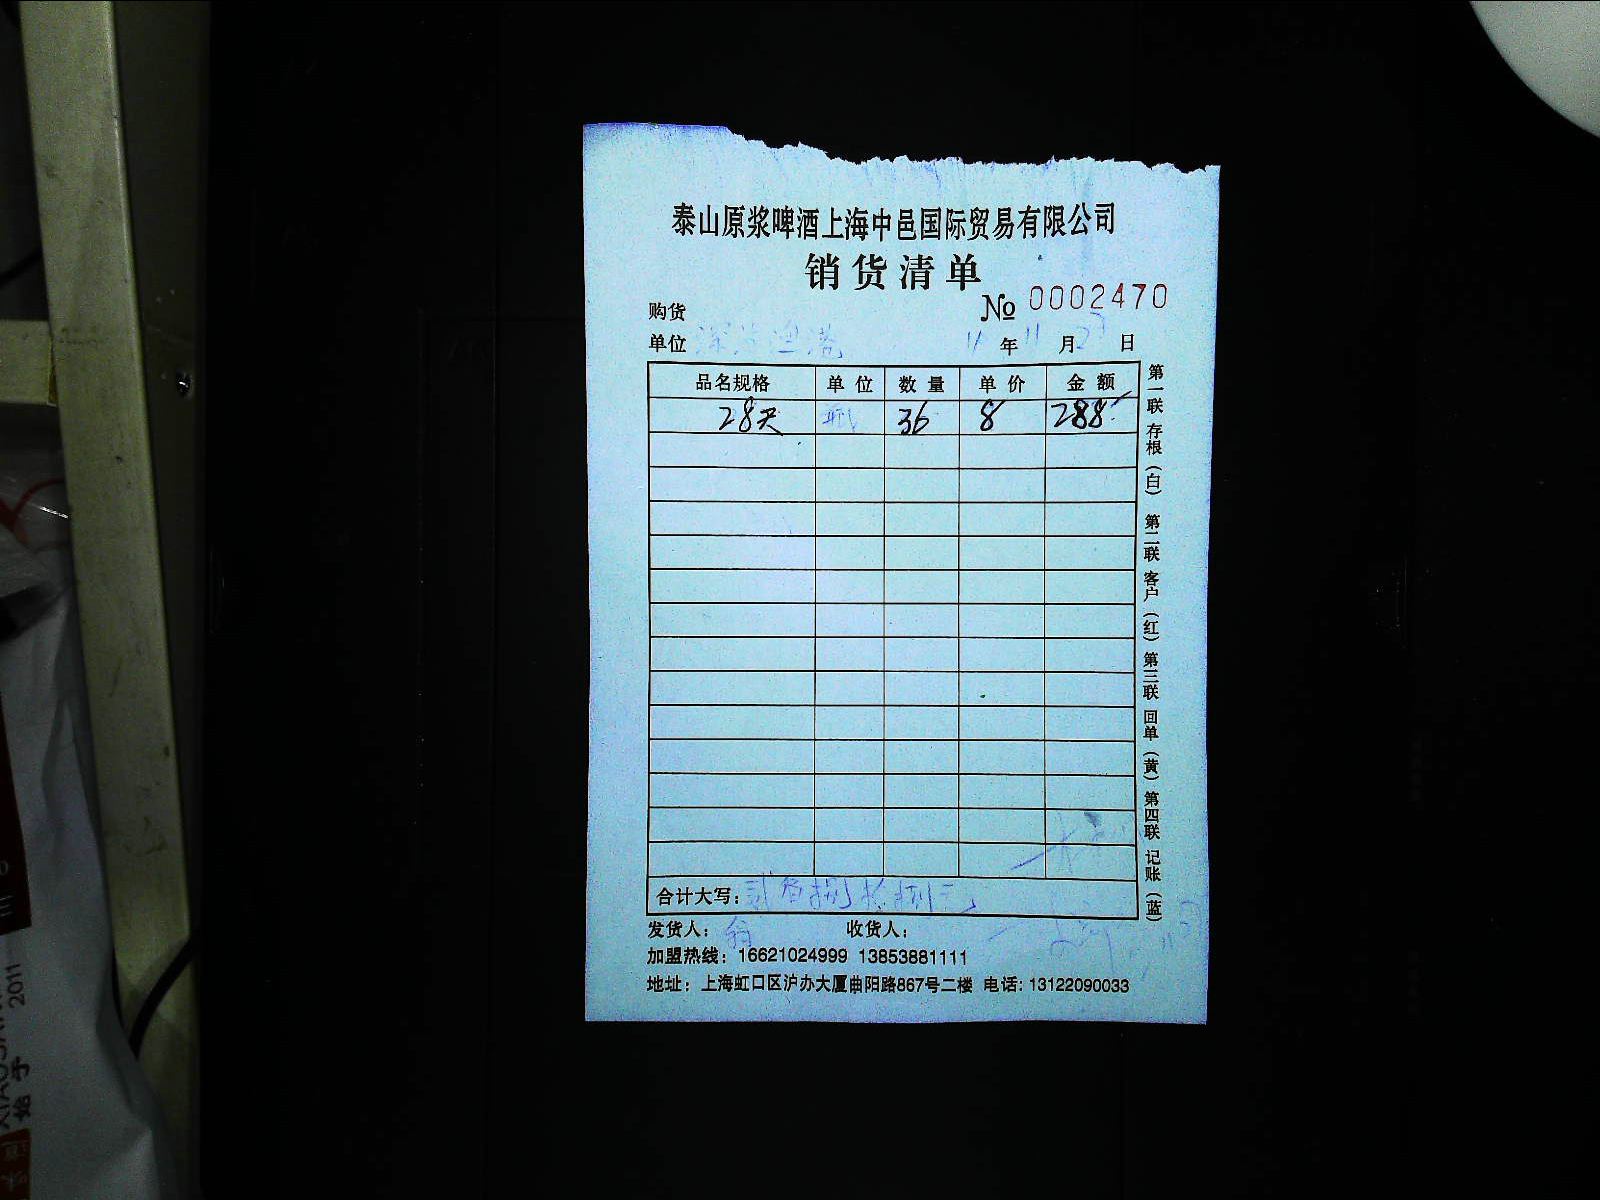 泰山原浆啤酒上海中邑国际贸易有限公司
销货清单
№ 0002470
购货
单位 年 11 月 27 日
品名规格 单位 数量 单价 金额
28天 瓶 36 8 288
合计大写：贰佰捌拾捌元
发货人： 收货人：
加盟热线：16621024999 13853881111
地址：上海虹口区沪办大厦曲阳路867号二楼 电话：13122090033
第一联 存根（白） 第二联 客户（红） 第三联 回单（黄） 第四联 记账（蓝）
始于 2011